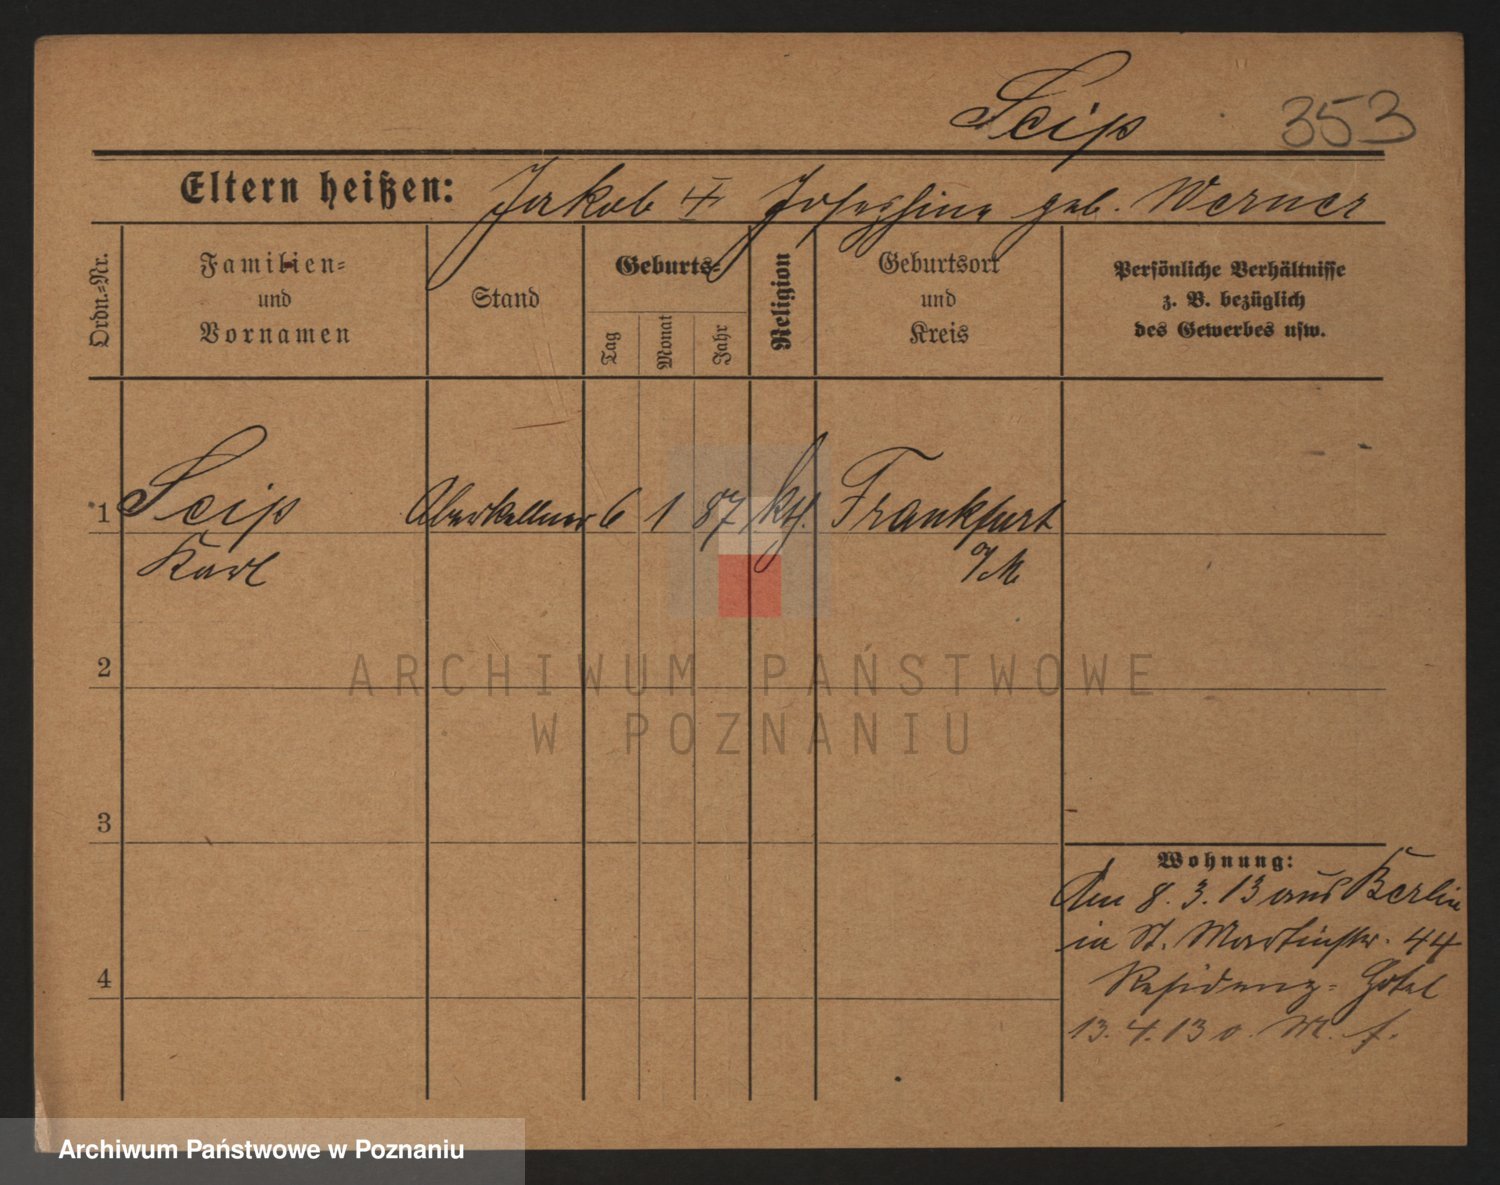 Seip 353
Eltern heißen: Jakob u. Josephine geb. Werner
Ordn.-Nr.
Familien-
und
Vornamen
Stand
Geburts-
Tag
Monat
Jahr
Religion
Geburtsort
und
Kreis
Persönliche Verhältnisse
z. B. bezüglich
des Gewerbes usw.
1 Seip Oberkellner 6 1 87 kth. Frankfurt
Karl a/M
2
3
4
Wohnung:
Am 8.3.13 aus Berlin
in St. Martinstr. 44
Residenz-Hotel
13.4.13 o. M. f.
ARCHIWUM PAŃSTWOWE
W POZNANIU
Archiwum Państwowe w Poznaniu